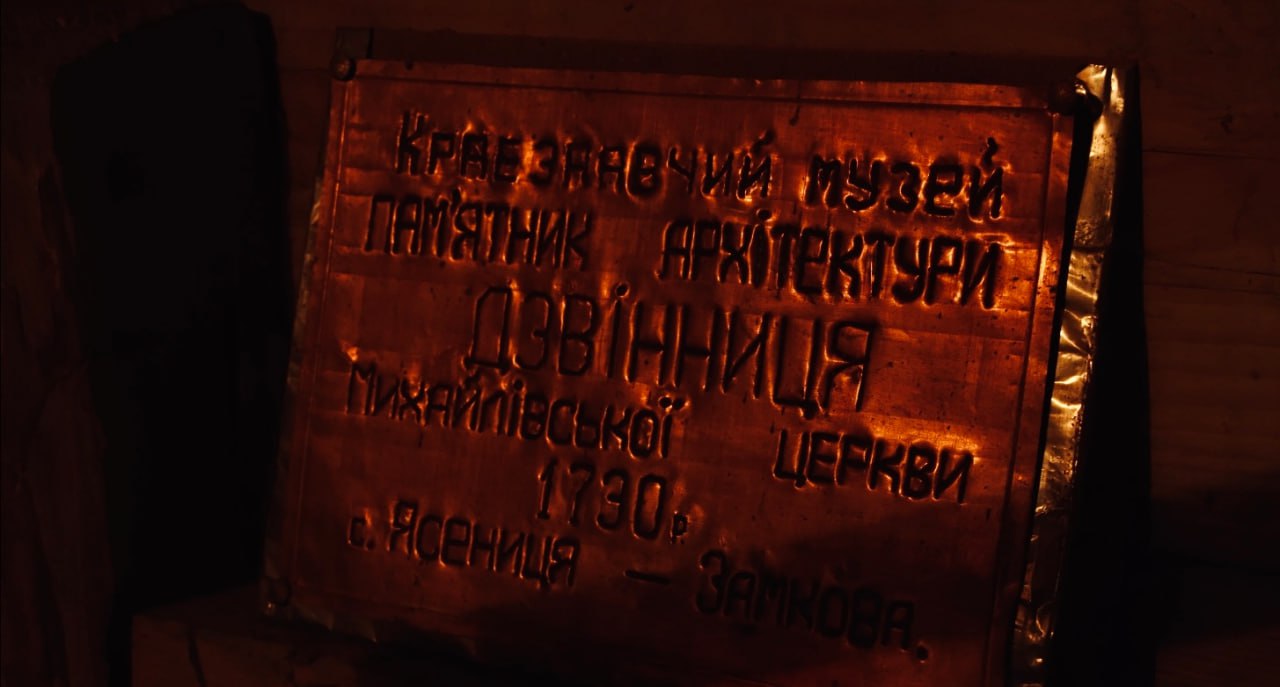 Краезнавчий музей
ПАМ'ЯТНИК АРХІТЕКТУРИ
ДЗВІННИЦЯ
Михайлівської ЦЕРКВИ
1730 р.
с. ЯСЕНИЦЯ — ЗАМКОВА.